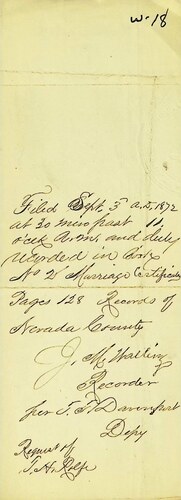 W-18
Filed Sept. 3d A.D. 1872
at 30 mins past 11
o'clk A.M. and duly
recorded in Book
No 2 Marriage Certificates
Pages 128 Records of
Nevada County
J. M. Walling
Recorder
per T. T. Davenport
Depy
Request of
T. H. Rolfe